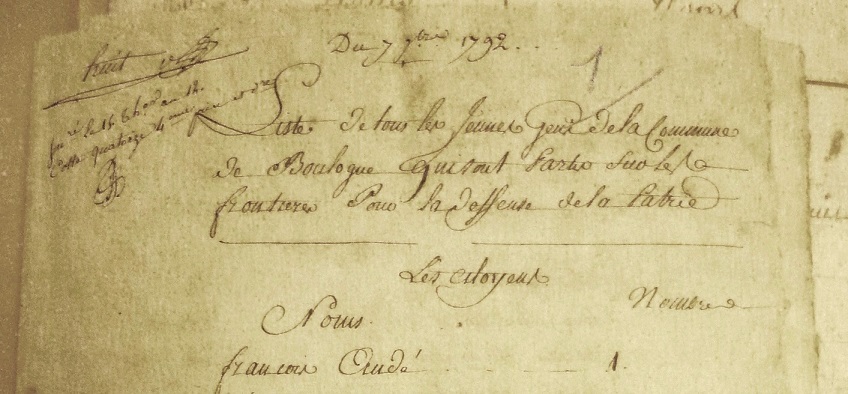 Du 7 9bre 1792...
1
huit
Liste de tous les Jeunes Gens de la Commune
de Boulogne Qui sont Partis Sur les
frontieres Pour la deffense de la Patrie
Les Citoyens
Nombre
Noms.
francois Cudé 1.